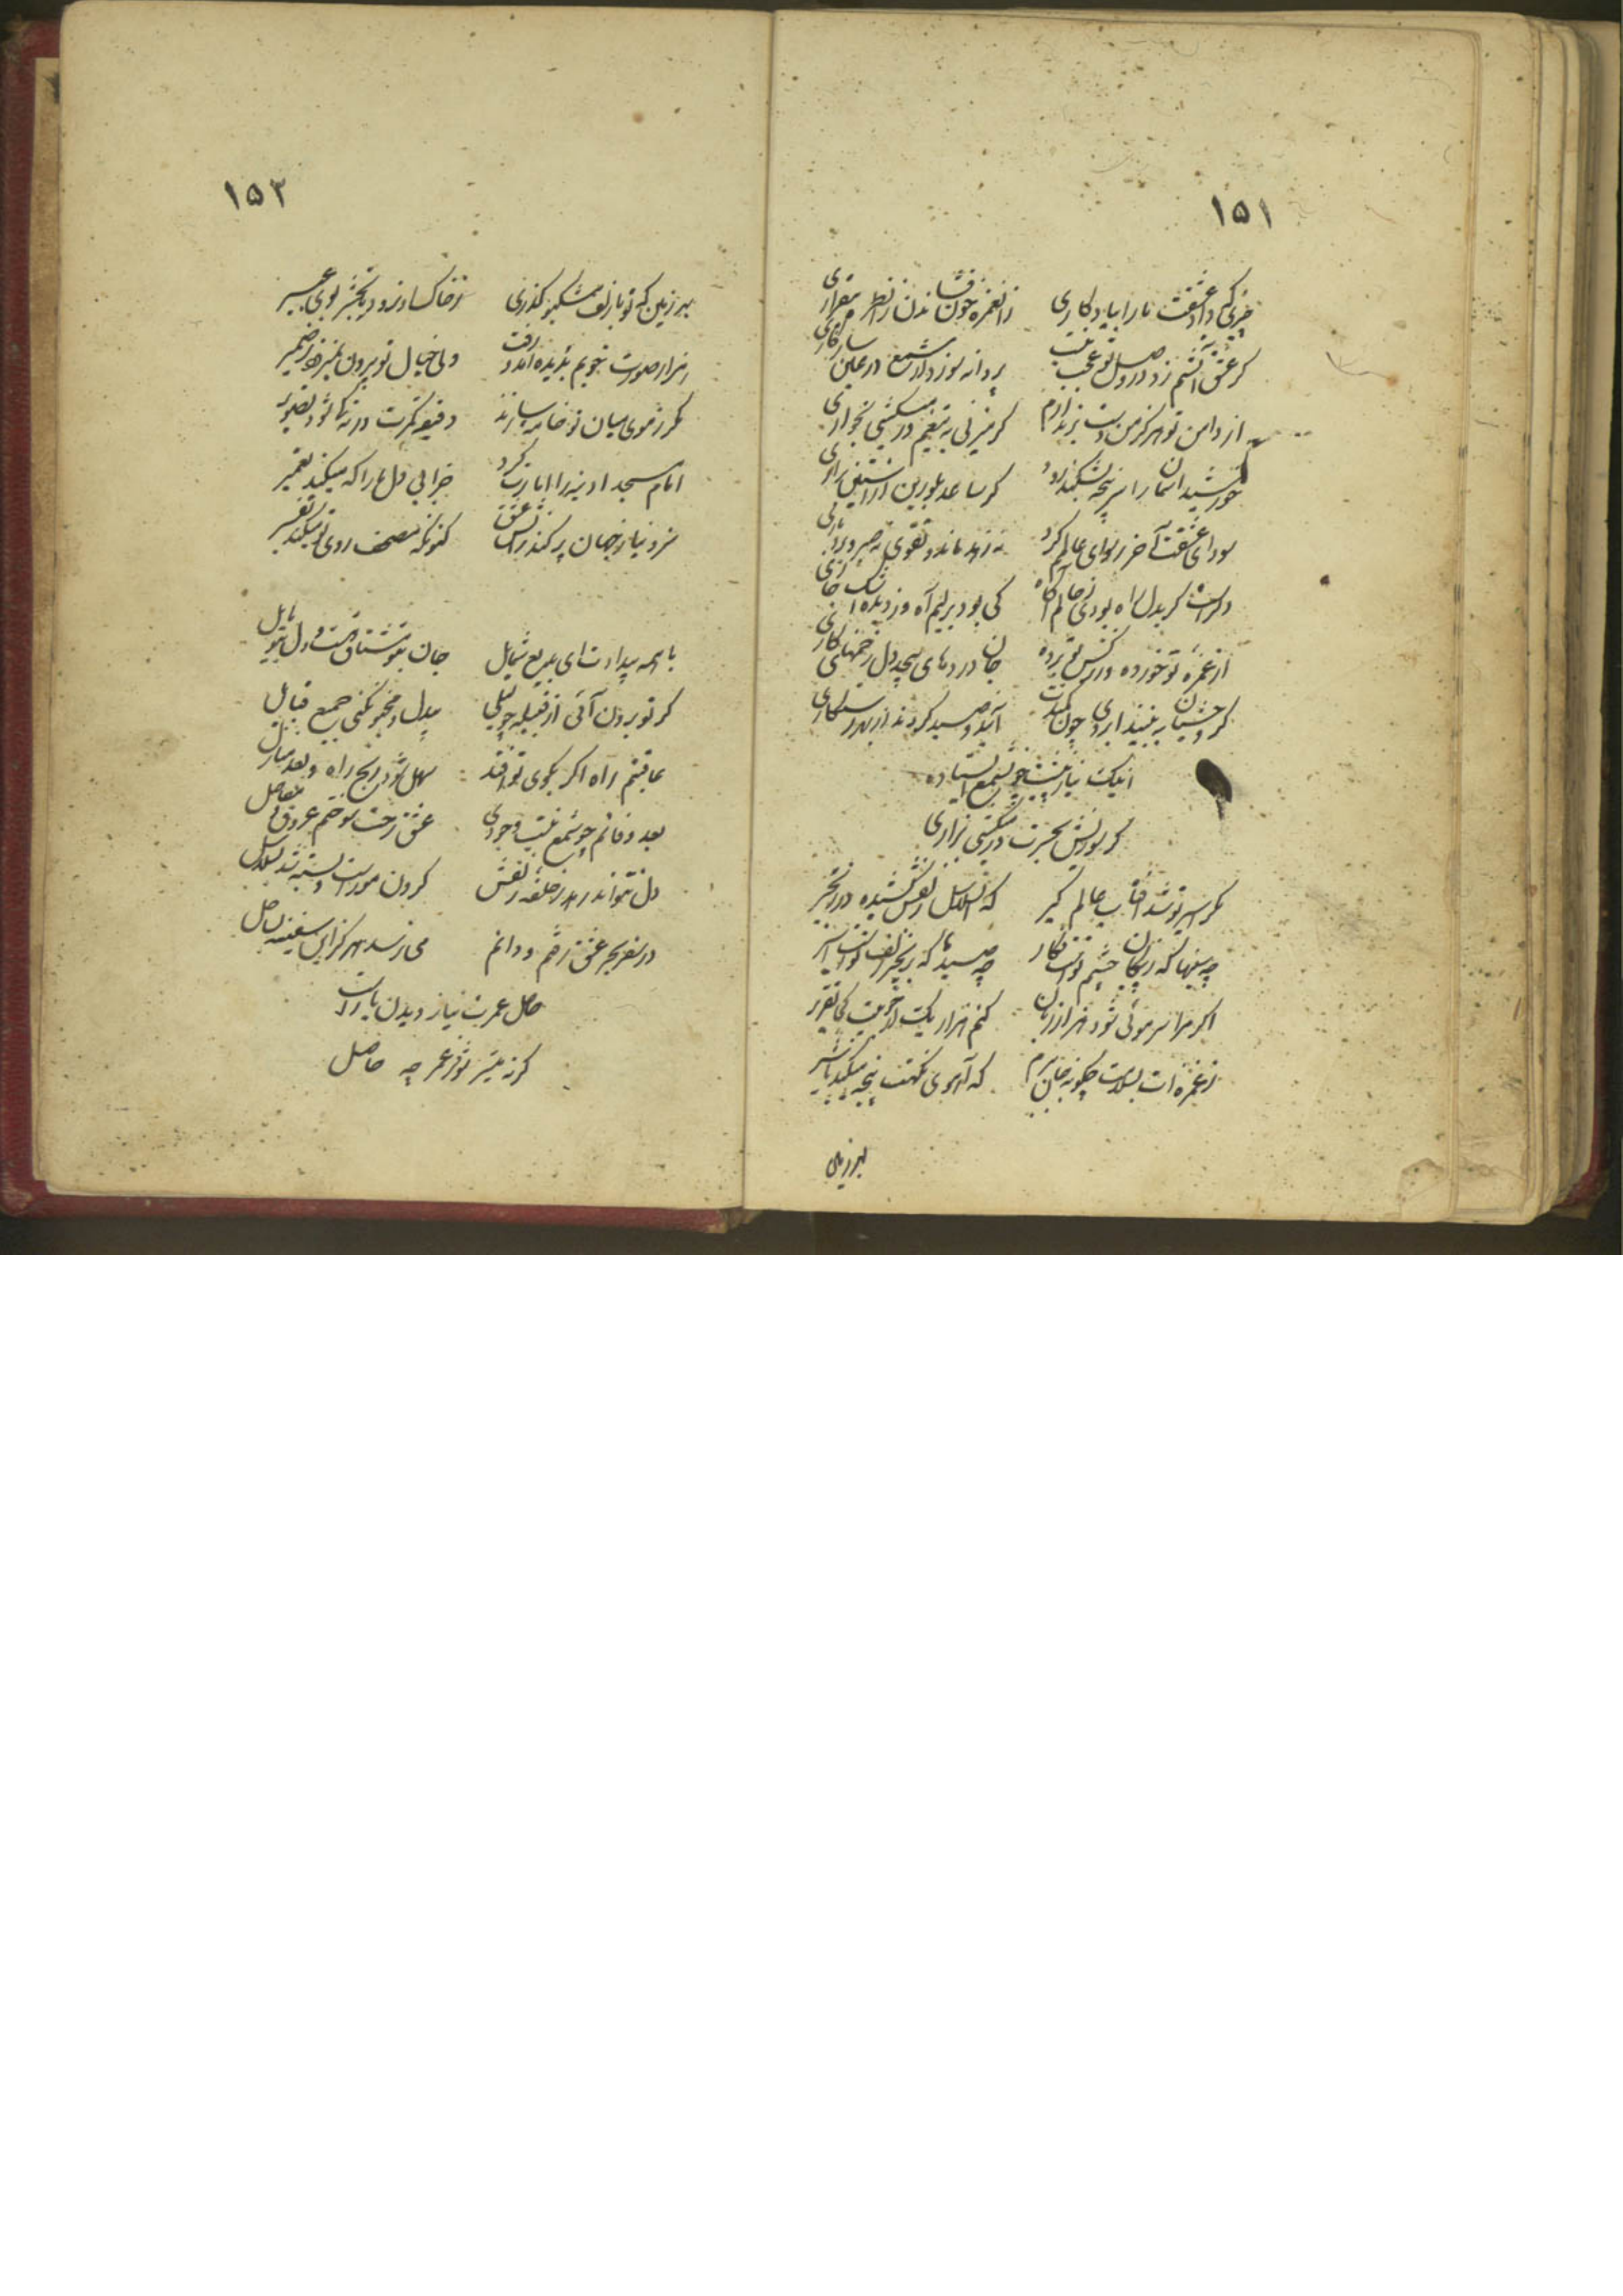 ۱۵۱
چیزی که داد عشقت ما را بیادگاری
زان غمزه خون فشاندن زان طره بیقراری
گر عشقت آتشم زد در وصل تو عجب نیست
پروانه سوزد از شمع در عین سازگاری
از دامن تو هرگز من دست برندارم
گر میزنی به تیغم ور میکشی بخواری
خورشید آسمان را سرپنجه بشکند زود
گر ساعد بلورین از آستین برآری
سودای عشقت آخر رسوای عالمم کرد
نه زهد ماند و تقوی نه صبر و بردباری
دل راست گر بدل راه بودی ز حالم آگاه
کی بود بر لبم آه وز دیده اشک جاری
از غمزه تو خورده وز نرگس تو برده
جان دردهای بیحد دل زخمهای کاری
گر وحشیان به بینند ابروی چون کمندت
آیند و صید گردند از بهر رستگاری
اینک نیاز پیشت چون شمع ایستاده
گر سوزیش بحسرت ور میکشی بزاری
مگر اسیر تو شد آفتاب عالم گیر
که از سلاسل زلفش کشیده در زنجیر
چه سینها که ز پیکان چشم تست فکار
چه صیدها که بزنجیر زلف تست اسیر
اگر مرا سر موئی شود هزار زبان
کنم هزار یک از خوبیت کی تقریر
ز غمزه ات بسلامت چگونه جان ببرم
که آهوی نگهت پنجه میکند با شیر
بهر زمین
۱۵۲
بهر زمین که تو با زلف مشکبو گذری
ز خاک تا دم رود بر نخیزد بوی عبیر
هزار صورت خوبم بدیده آمد و رفت
ولی خیال تو بیرون نمیرود ز ضمیر
مگر ز موی میان تو خامه سازند
دقیقه کمرت ورنه کی شود تصویر
امام مسجد آدینه را اجازت کرد
خرابی دل ما را که میکند تعمیر
سزد نیاز جهان پر کند ز آتش عشق
کنونکه مصحف روی تو میکند تفسیر
با همه بیدادت ای بدیع شمایل
جان بتو مشتاق تست و دل بتو مایل
گر تو برون آئی از قبیله چو لیلی
بیدل و مجنون کنی جمیع قبایل
عاقبتم راه اگر بکوی تو افتد
سهل شود رنج راه و بعد منازل
بعد وفاتم چو شمع نیست وجودی
عشق رخت سوختم عروق و مفاصل
دل نتواند رهد ز حلقه زلفش
گردن مور است و بسته شد بسلاسل
در سفر بحر عشق رفتم و دانم
می نرسد هرگز این سفینه بساحل
حاصل عمرت نیاز دیدن یار است
گر نه میسر شود ز عمر چه حاصل